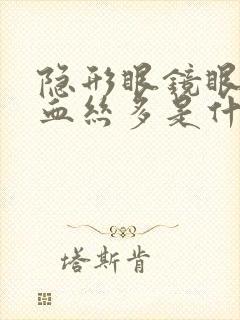 隐形眼镜眼
血丝多是什
塔斯肯